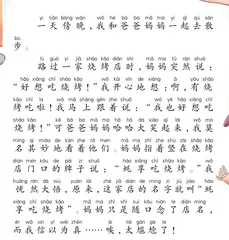 yì tiān bàng wǎn wǒ hé bà ba mā ma yì qǐ qù sàn
一天傍晚，我和爸爸妈妈一起去散
bù
步。
lù guò yì jiā shāo kǎo diàn shí mā ma tū rán shuō
路过一家烧烤店时，妈妈突然说：
hǎo xiǎng chī shāo kǎo wǒ kāi xīn de xiǎng a yǒu shāo
“好想吃烧烤！”我开心地想：啊，有烧
kǎo chī la wǒ mǎ shàng gēn zhe shuō wǒ yě hǎo xiǎng chī
烤吃啦！我马上跟着说：“我也好想吃
shāo kǎo kě bà ba mā ma hā hā dà xiào qǐ lái wǒ mò
烧烤！”可爸爸妈妈哈哈大笑起来，我莫
míng qí miào de kàn zhe tā men mā ma zhǐ zhe shāo kǎo
名其妙地看着他们。妈妈指着竖在烧烤
diàn mén kǒu de pái zi shuō háo xiǎng chī shāo kǎo wǒ
店门口的牌子说：“蚝享吃烧烤。”我
huǎng rán dà wù yuán lái zhè jiā diàn de míng zi jiù jiào háo
恍然大悟，原来，这家店的名字就叫“蚝
xiǎng chī shāo kǎo mā ma zhǐ shì suí kǒu niàn le diàn míng
享吃烧烤”。妈妈只是随口念了店名，
ér wǒ xìn yǐ wéi zhēn āi tài gān gà le
而我信以为真……唉，太尴尬了！